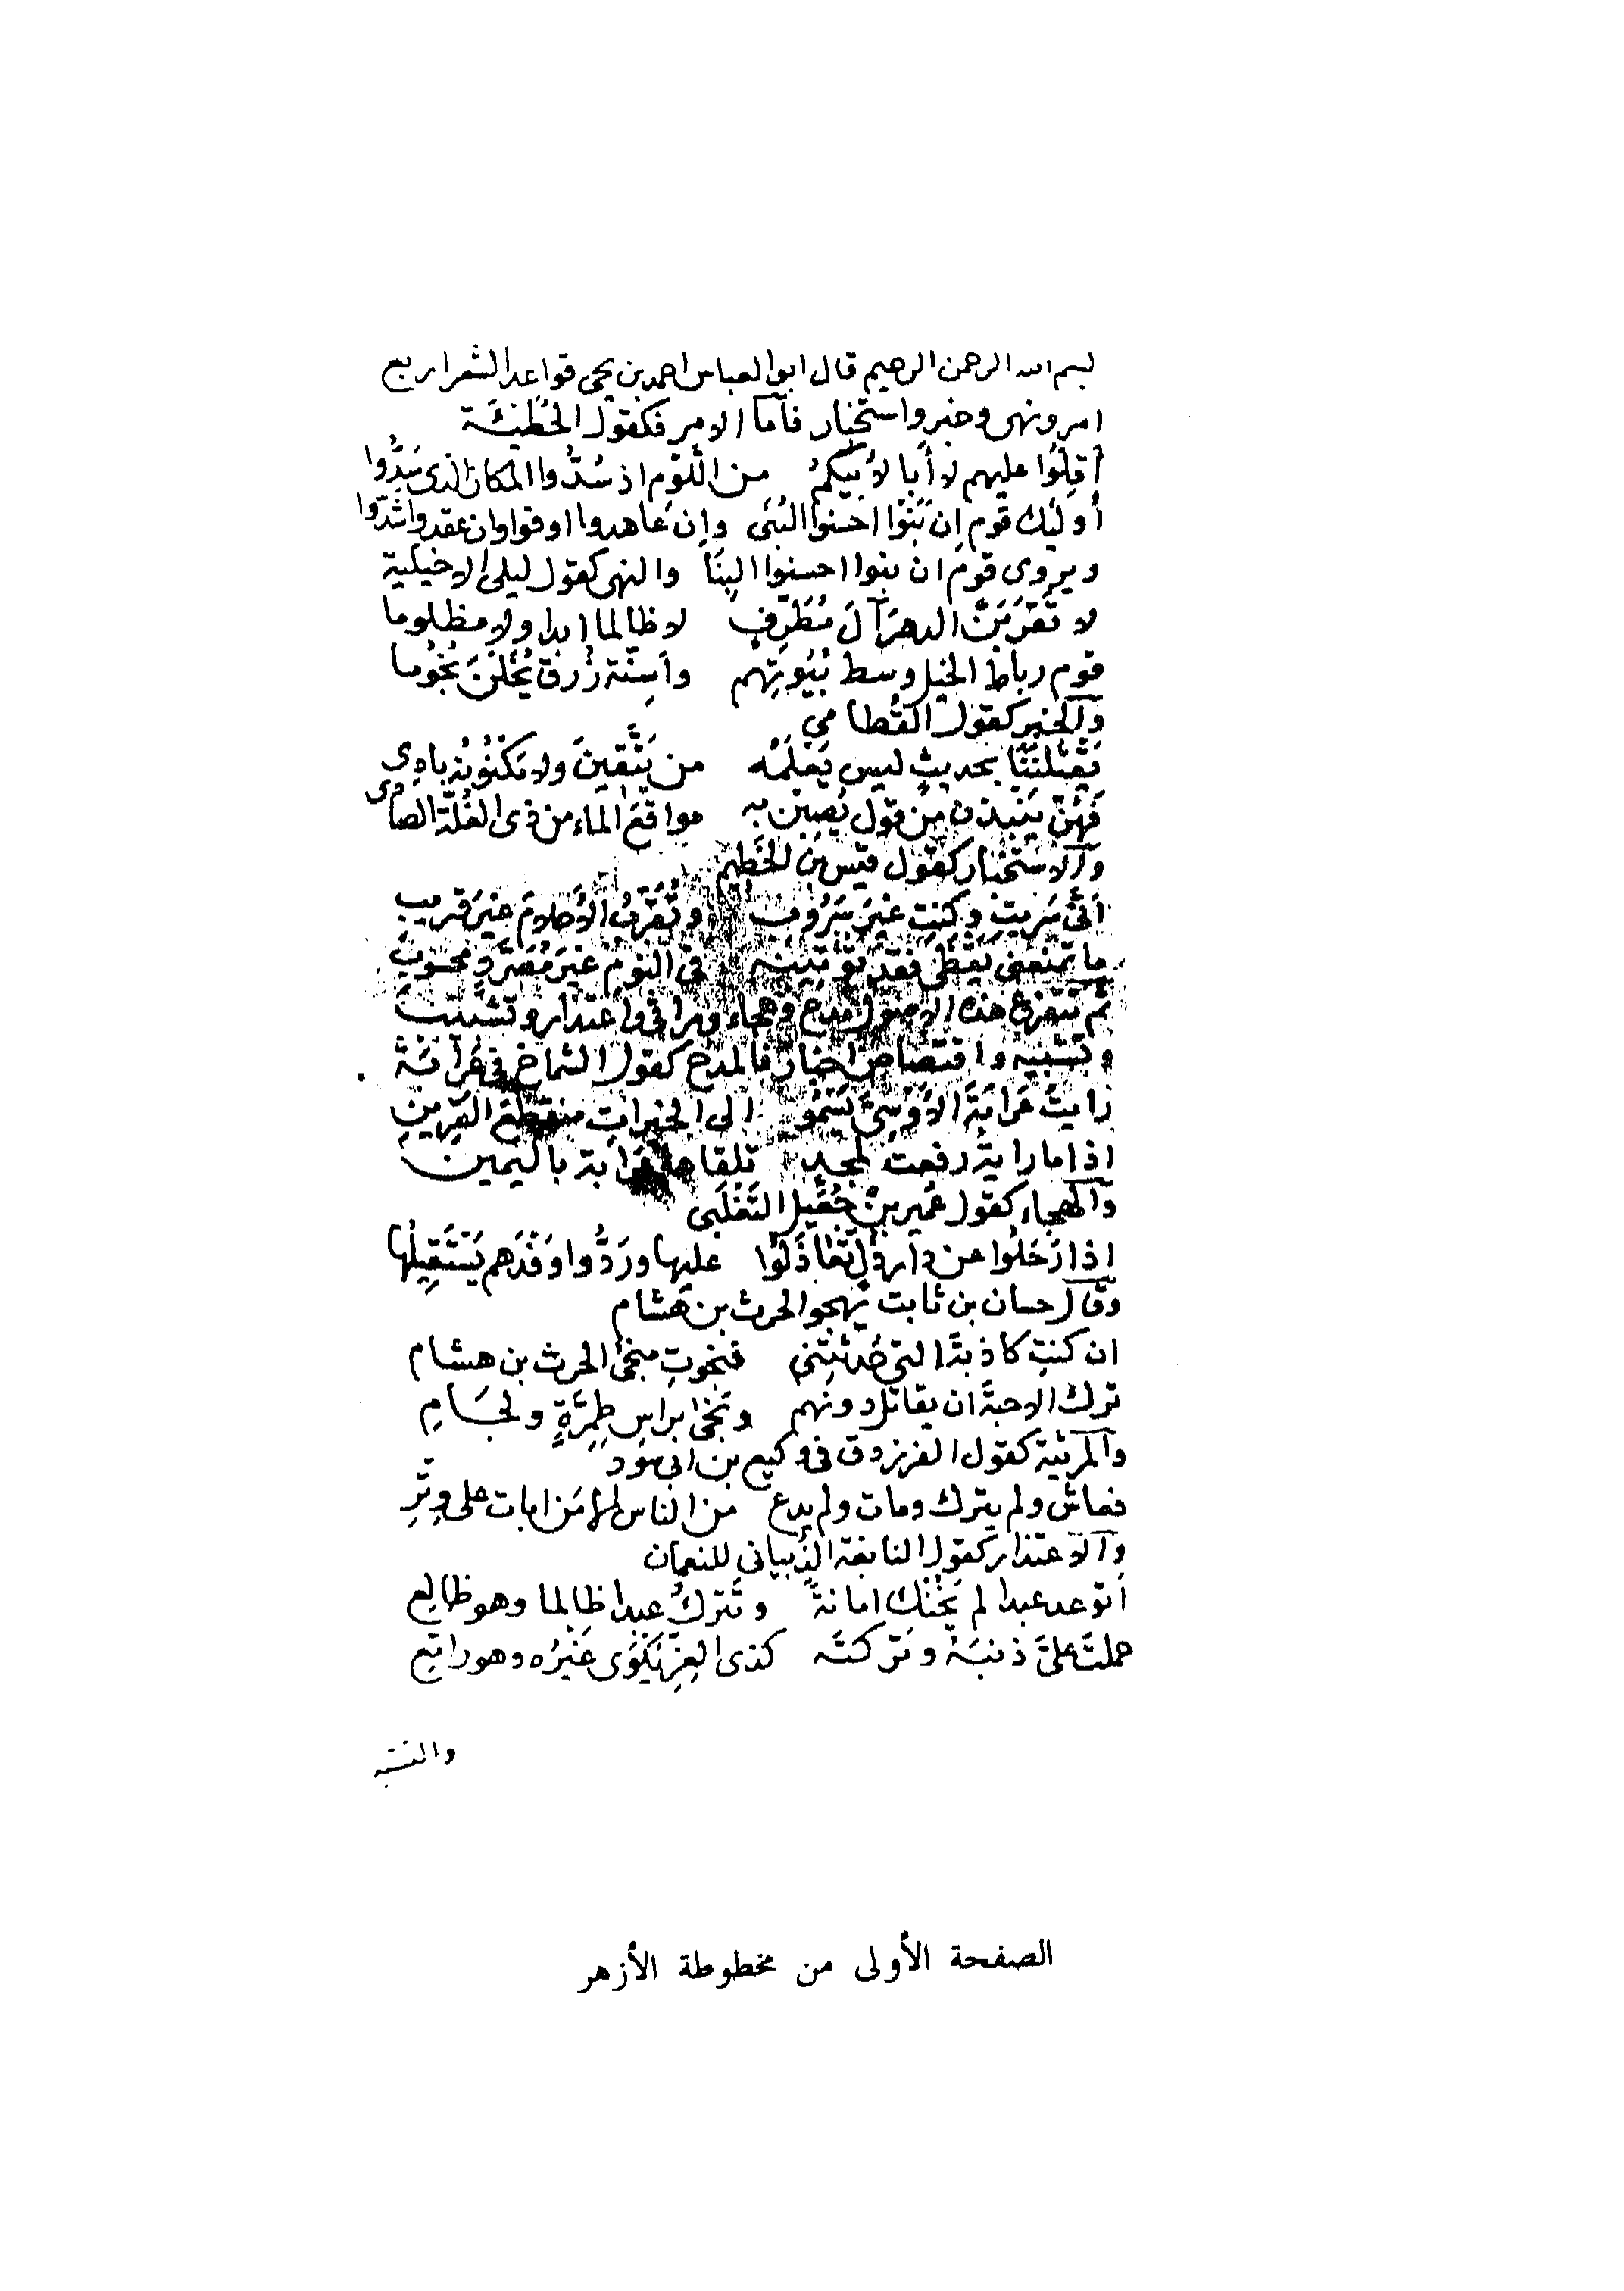 بسم الله الرحمن الرحيم قال ابو العباس احمد بن يحيى قواعد الشعر اربع
امر ونهى وخبر واستخبار فأما الامر فكقول الحُطَيْئَة
أقِلُّوا عليهم لا أبا لأبيكمُ من اللَّوْمِ اذ سُدُّوا المكان الذى سَدُّوا
أوليك قوم إن بَنَوْا احسنوا البُنَى وإن عَاهدوا اوفوا وان عقدوا شَدّوا
ويروى قوم ان بنوا احسنوا البِنَا والنهى كقول ليلى الاخيلية
لا تَقْرَبَنَّ الدهرَ آلَ مُطَرِّفٍ لا ظالما ابدا ولا مظلوما
قوم رباط الخيل وسط بُيُوتِهم وأَسِنّة زُرق يُخَلْنَ نُجُوُما
والخبر كقول القُطامي
يَقْتُلْنَنَا بحديثٍ ليس يَعْلَمُه من يَتَّقِينَ ولا مَكْنُونُه بادِى
فَهُنّ يَنْبِذن من قول يُصِبْن به مواقعَ الماء من ذى الغُلّة الصادى
والاستخبار كقول قيس بن الخَطِيم
أنَّى سَرَيتِ وكنتِ غيرَ سَرُوبِ وتُقَرِّبُ الأحلامُ غيرَ قريب
ما تمنعى يَقْظَى فقد تُؤْتِينَه فى النومِ غيرَ مُصَرَّدٍ محسوبِ
ثم تتفرع هذه الاصول مدح وهجاء ومراثى واعتذار وتشبيب
وتشبيه واقتصاص اخبار فالمدح كقول الشماخ فى عَرَابَةَ
رايتُ عَرَابَةَ الاَوْسِىَّ يَسْمُو الى الخيراتِ منقطعَ القَرِينِ
اذا ما راية رفعت لمجدٍ تلقاها عَرَابة باليمين
والهجاء كقول عُمَير بنُ جُعَيْل التَّغْلَبى
اذا رَحَلُوا عن دار ذُلّ تَعَاذَلُوْا عليها ورَدُّوا وَفْدَهم يَسْتَقِيلُها
وقال حسان بن ثابت يهجو الحرث بن هشام
ان كنتِ كاذبةَ التى حَدثْتِنى فنجوتِ منجى الحرث بن هشام
ترك الاحبةَ ان يقاتل دونهم ونَجَى براسِ طِمِرَّةٍ ولجَامِ
والمرثية كقول الفرزدق فى وكيع بن ابى سود
فعاش ولم يترك ومات ولم يدع من الناس إلا مَن ابات على وِتْرِ
والاعتذار كقول النابغة الذُبيانى للنعمان
أتوعد عبدا لم يَخُنْك امانةً وتَتركُ عبدا ظالما وهو ظالع
حملتَ علىَّ ذنبَهُ وتركتَه كذى العِزّ يَكْوَى غَيْرُه وهو راتع
والتشبيه
الصفحة الأولى من مخطوطة الأزهر